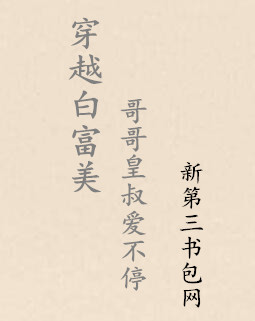 穿越白富美
哥哥皇叔爱不停
新第三书包网